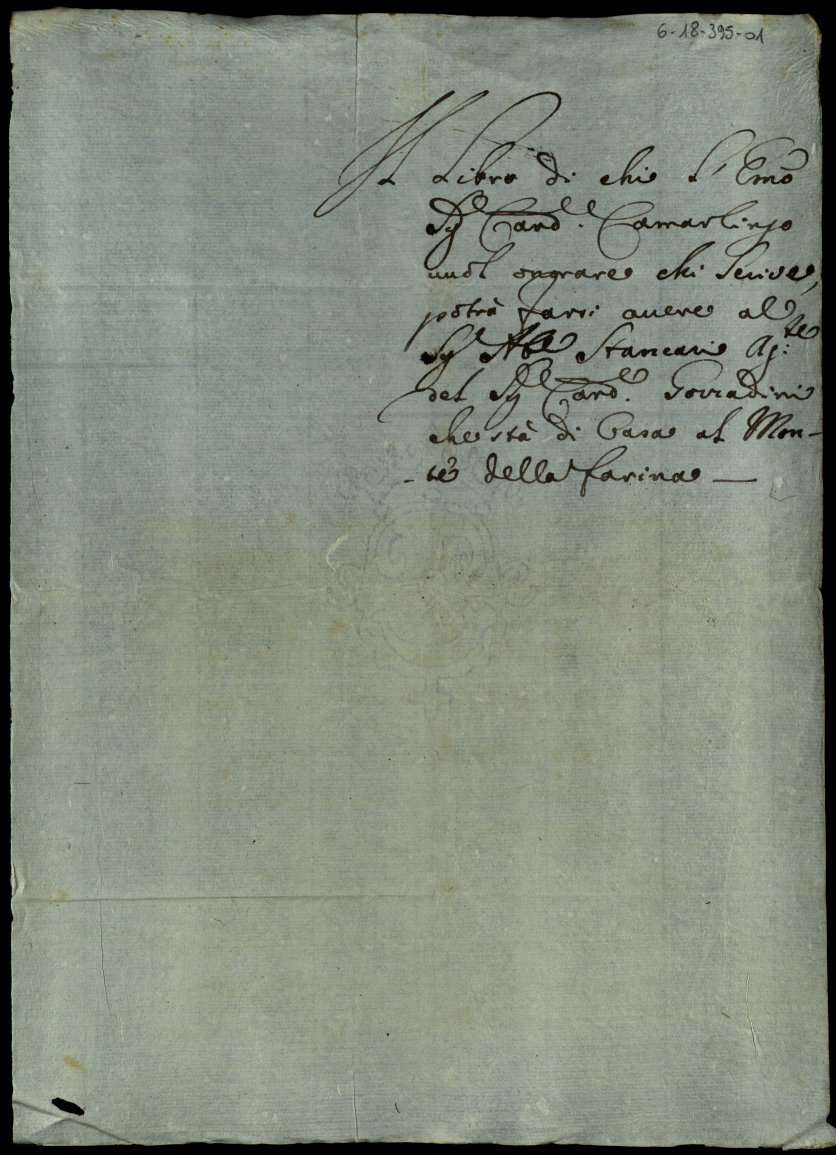 6-18-395-01
Il Libro di chi l'Emõ
Sig.r Card.le Camarlingo
vuol onorare chi scrive,
potrà farsi avere al
Sig.r Ab.e Stancari Ag:te
del Sig.r Card.le Corradini
che stà di Casa al Mon-
-te della farina —